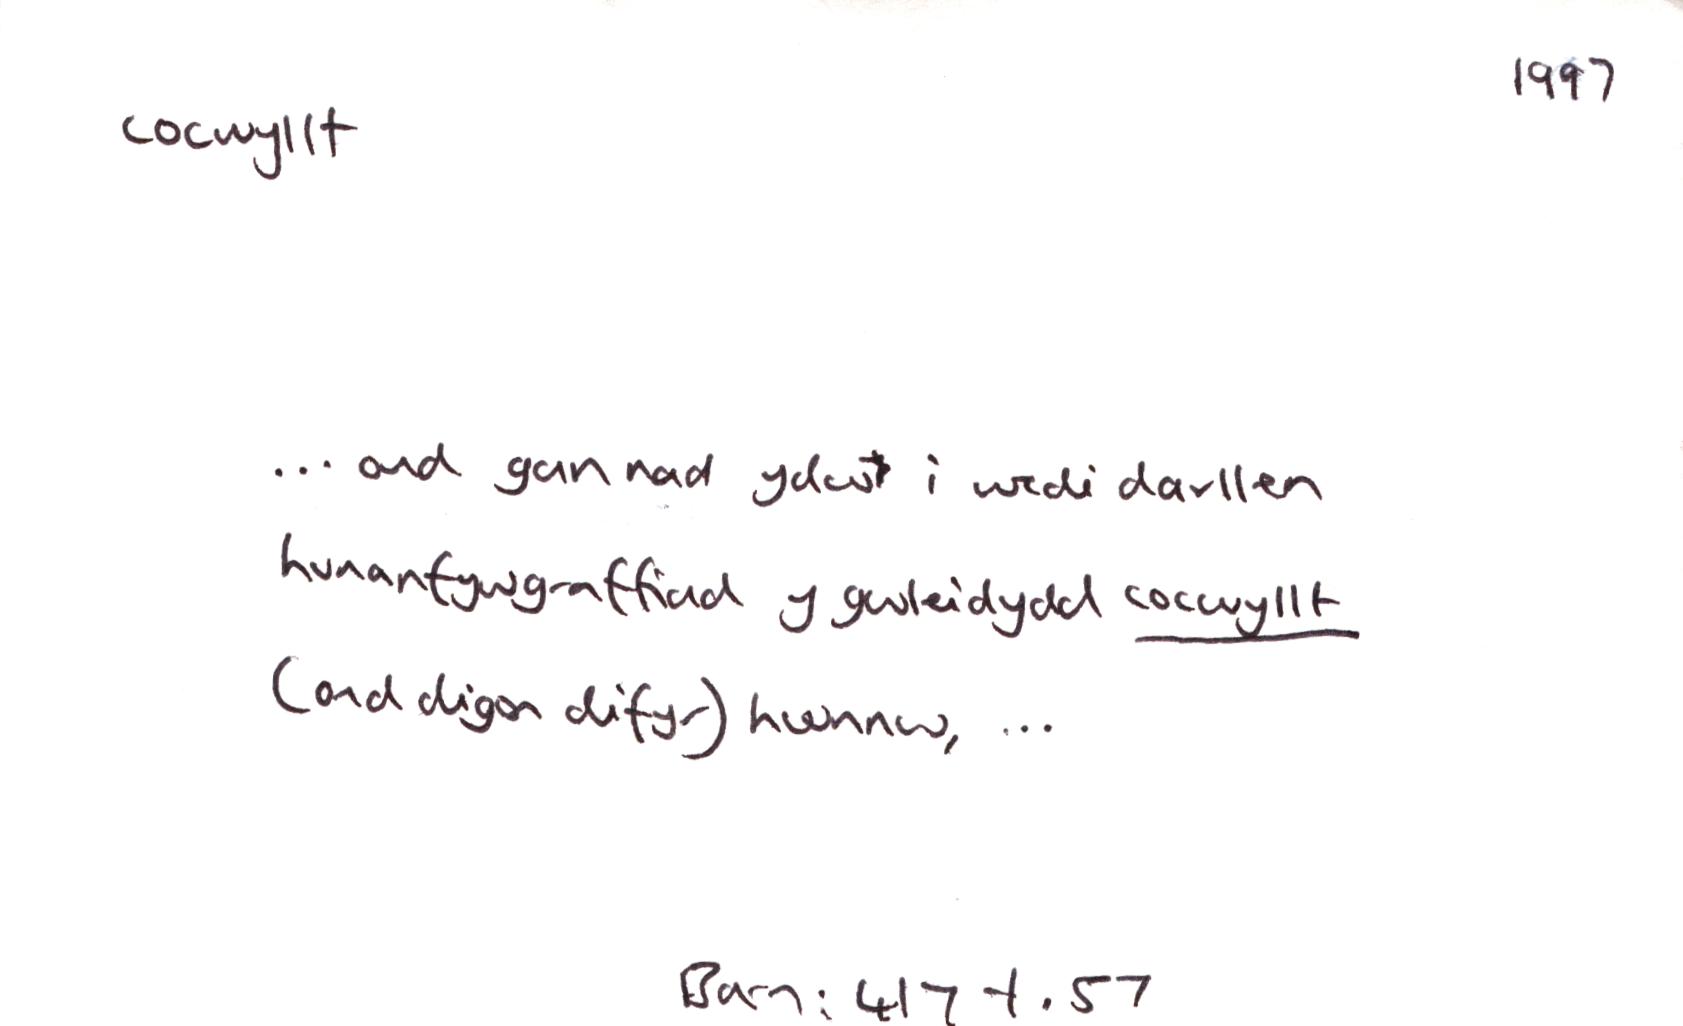 1997
cocwyllt
... ond gan nad ydwt i wedi darllen
hunanfywgraffiad y gwleidydd cocwyllt
(ond digon difyr) hwnnw, ...
Barn: 417 t. 57